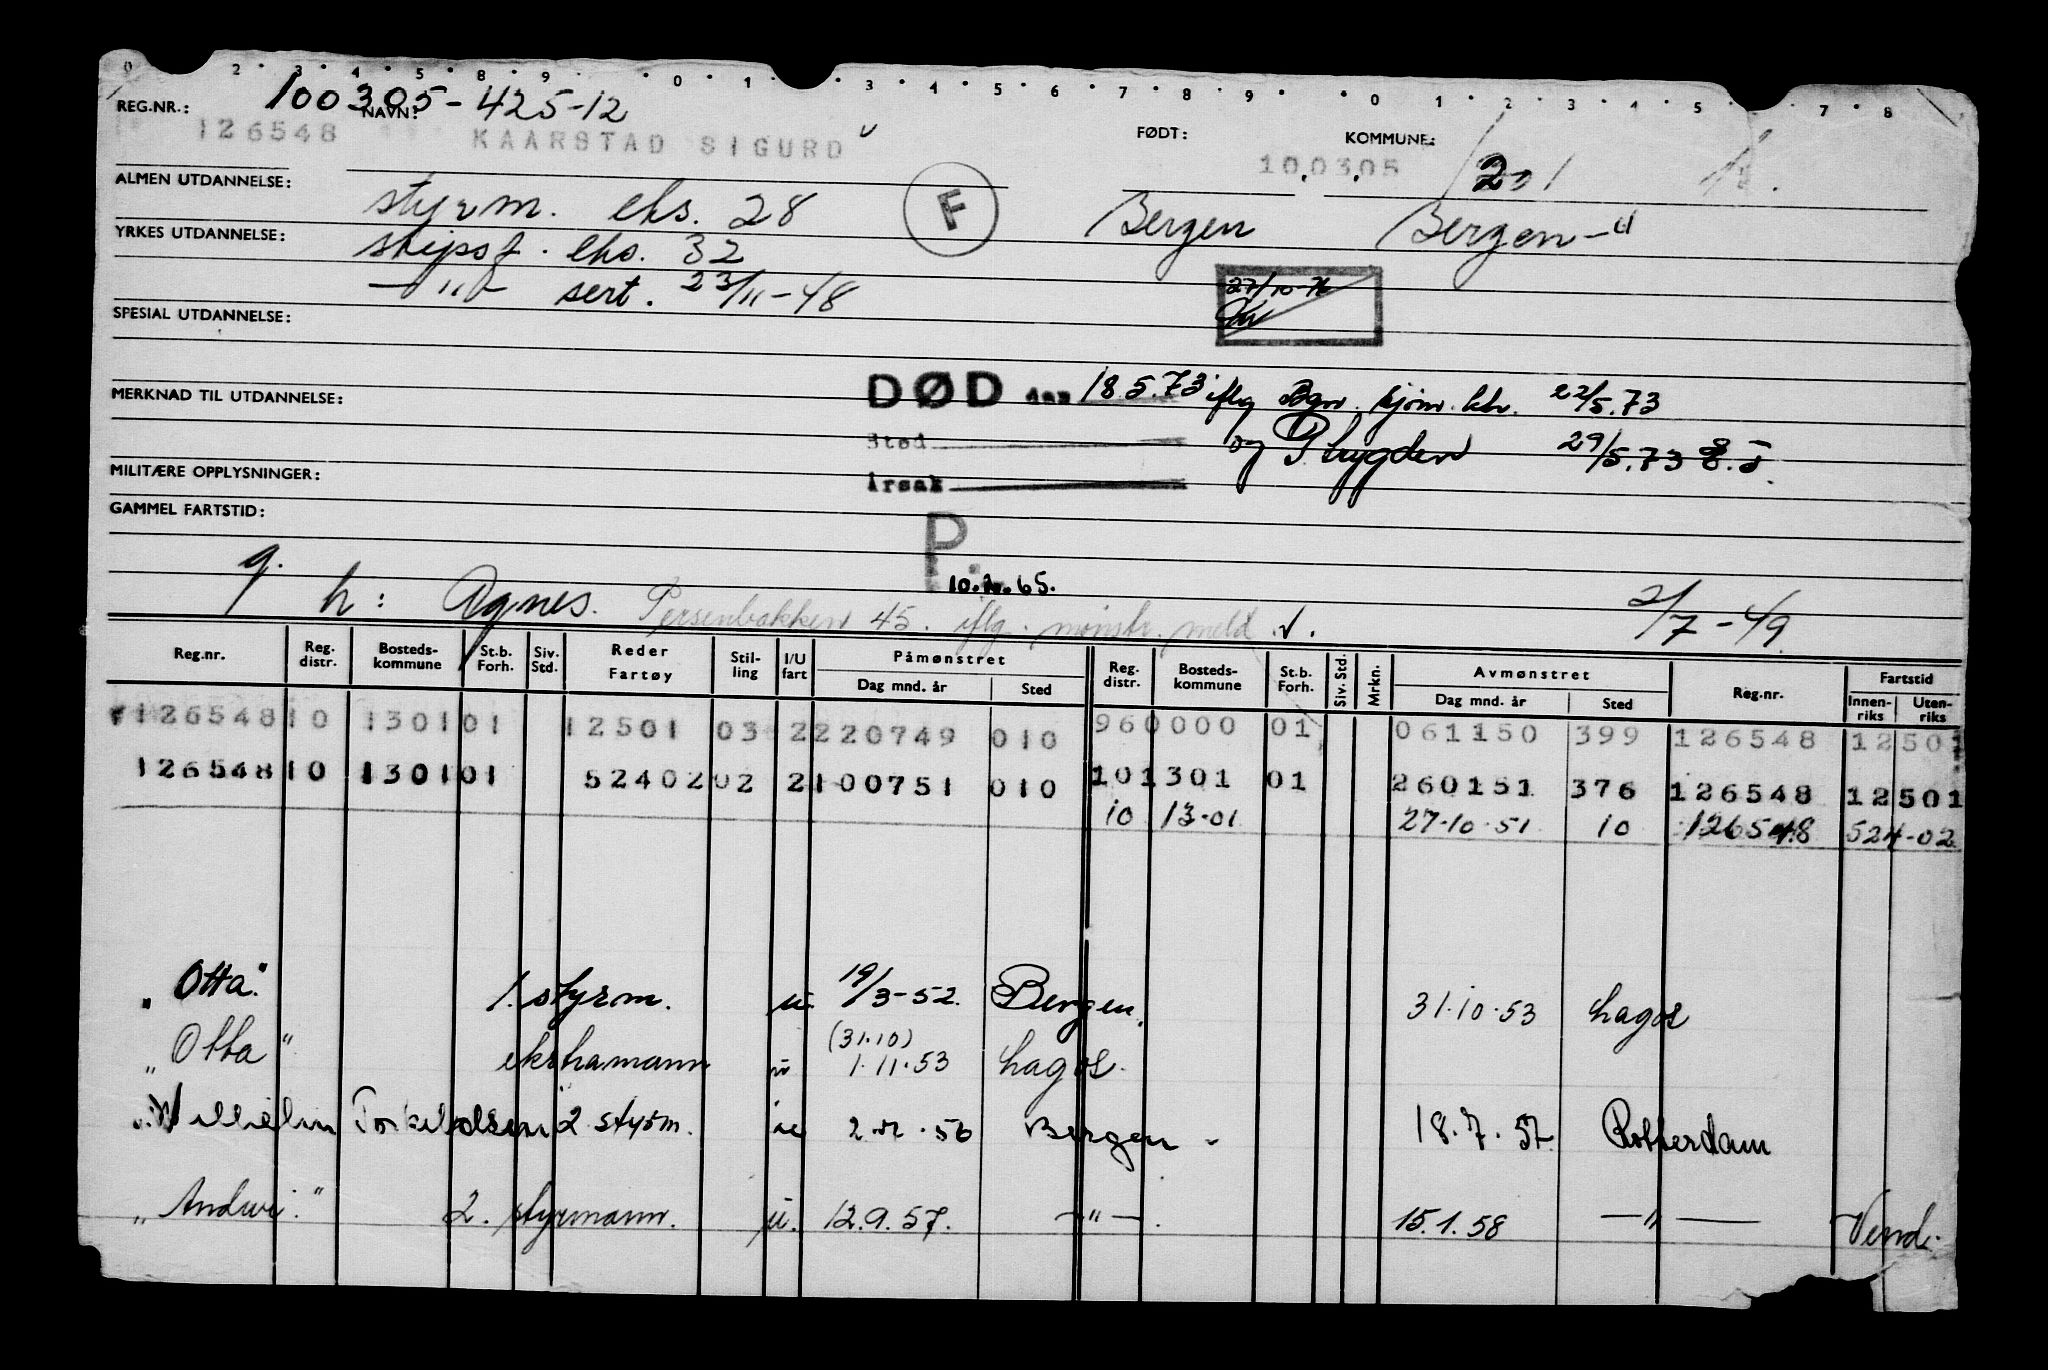 0 2 · 3 · 4 · 5 · 8 · 9 · · 0 · 1 · · 3 · 4 · 5 · 6 · 7 · 8 · 9 · · 0 · 1 · 2 · 3 · 4 · 5 · 7 · 8
REG.NR.: 100305-425-12
NAVN: FØDT: KOMMUNE:
126548 KAARSTAD SIGURD 10.03.05 201
ALMEN UTDANNELSE: styrm. eks. 28 F Bergen Bergen-u
YRKES UTDANNELSE: skipsf. eks. 32
—"— sert. 23/11-48 27/10-76
SPESIAL UTDANNELSE:
MERKNAD TIL UTDANNELSE: DØD den 18.5.73 iflg Bgn. sjøm. ktr. 22/5.73
Sted og P.bygden 29/5.73
MILITÆRE OPPLYSNINGER: Årsak
GAMMEL FARTSTID: P.
g. 10.2.65.
h: Agnes. Persenbakken 45. iflg. mønstr. meld. 2/7-49
Reg.nr. Reg. distr. Bosteds-kommune St.b. Forh. Siv. Std. Reder Fartøy Stil-ling I/U fart Påmønstret Dag mnd. år Sted Reg. distr. Bosteds-kommune St.b. Forh. Siv. Std. Mrkn. Avmønstret Dag mnd. år Sted Reg.nr. Fartstid Innen-riks Uten-riks
126548 10 1301 01 12501 03 2 220749 010 96 0000 01 061150 399 126548 12501
126548 10 1301 01 52402 02 2 100751 010 10 1301 01 260151 376 126548 12501
10 13-01 27-10-51 10 126548 524-02
"Otta" 1. styrm. u. 19/3-52. Bergen. 31.10.53 Lagos
(31.10)
"Otta" ekstramann u 1.11.53 Lagos.
"Wilhelm Torkildsen 2. styrm. u 56 Bergen - 18.7.57. Rotterdam
"Andwi." 2. styrmann. u. 12.9.57. —"—. 15.1.58 —"— Vend.